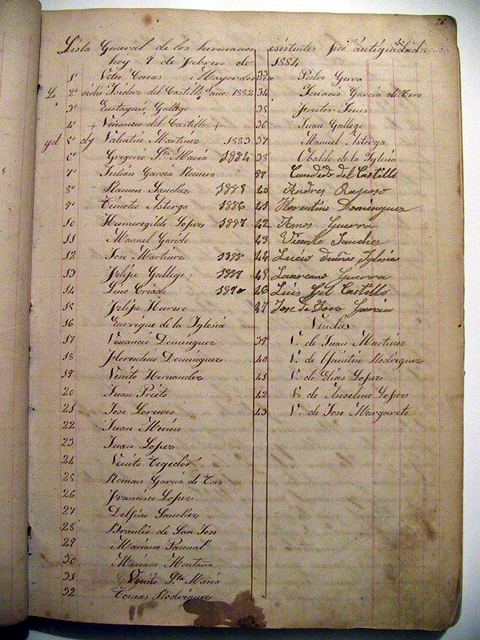 Lista General de los hermanos existentes por antigüedad
hoy 9 de Febrero de 1884
1º Mayordomo
2º Isidro del Castillo año 1882
3º Eustaquio Gallego
4º Venancio del Castillo +
5º Valentin Martinez 1883
6º Gregorio Sta Maria 1884
7º Julian Garcia Romero
8º Ramon Sanchez 1888
9º Timoteo Astorga 1886
10 Hermenegildo Lopez 1887
11 Manuel Garido
12 Jose Martinez
13 Felipe Gallego
14 Lino Criado
15 Felipe Herrero
16 Enrrique de la Iglesia
17 Venancio Dominguez
18 Florentino Dominguez
19 Venito Hernandez
20 Juan Prieto
21 Jose Lorenzo
22 Juan Merino
23 Juan Lopez
24 Venito Tegedor
25 Roman Garcia de Toro
26 Francisco Lopez
27 Delfin Sanchez
28 Braulio de San Jose
29 Mariano Pascual
30 Mariano Montaña
31 Venito Sta Maria
32 Tomas Rodriguez
33 Pedro Gura
34 Ignacio Garcia de Toro
35
36 Juan Gallego
37 Manuel Astorga
38 Ubaldo de la Iglesia
39 Candido del Castillo
40 Andres Raposo
41 Florentino Dominguez
42 Guerra
43 Vicente Sanchez
44 Lucio Iglesias
45 Laureano Guerra
46 Luis Gil Castillo
47 Jose de Toro Garcia
Viudas
39 V. de Juan Martinez
40 V. de Quintin Rodriguez
41 V. de Elias Lopez
42 V. de Anselmo Lopez
43 V. de Jose Margareto